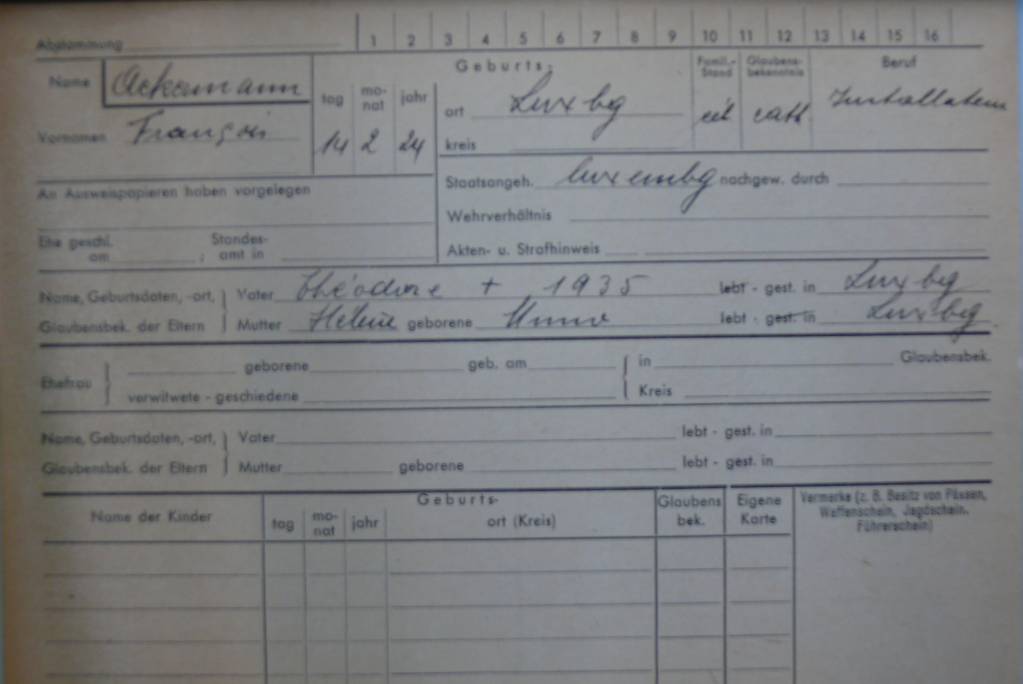 Abstammung 1 2 3 4 5 6 7 8 9 10 11 12 13 14 15 16
Name Ackermann
Vornamen François
Geburts-
tag monat jahr
14 2 24
ort Luxbg
kreis
Famil.-Stand
Glaubens-bekenntnis cath
Beruf
Installateur
An Ausweispapieren haben vorgelegen
Staatsangeh. luxembg nachgew. durch
Wehrverhältnis
Ehe geschl. am , Standes-amt in
Akten- u. Strafhinweis
Name, Geburtsdaten, -ort, Vater Théodore + 1935 lebt - gest. in Luxbg
Glaubensbek. der Eltern Mutter Helene geborene lebt - gest. in Luxbg.
Ehefrau geborene geb. am in Glaubensbek.
verwitwete - geschiedene Kreis
Name, Geburtsdaten, -ort, Vater lebt - gest. in
Glaubensbek. der Eltern Mutter geborene lebt - gest. in
Name der Kinder
Geburts-
tag mo-nat jahr ort (Kreis)
Glaubens bek.
Eigene Karte
Vermerke (z. B. Besitz von Pässen,
Waffenschein, Jagdschein,
Führerschein)